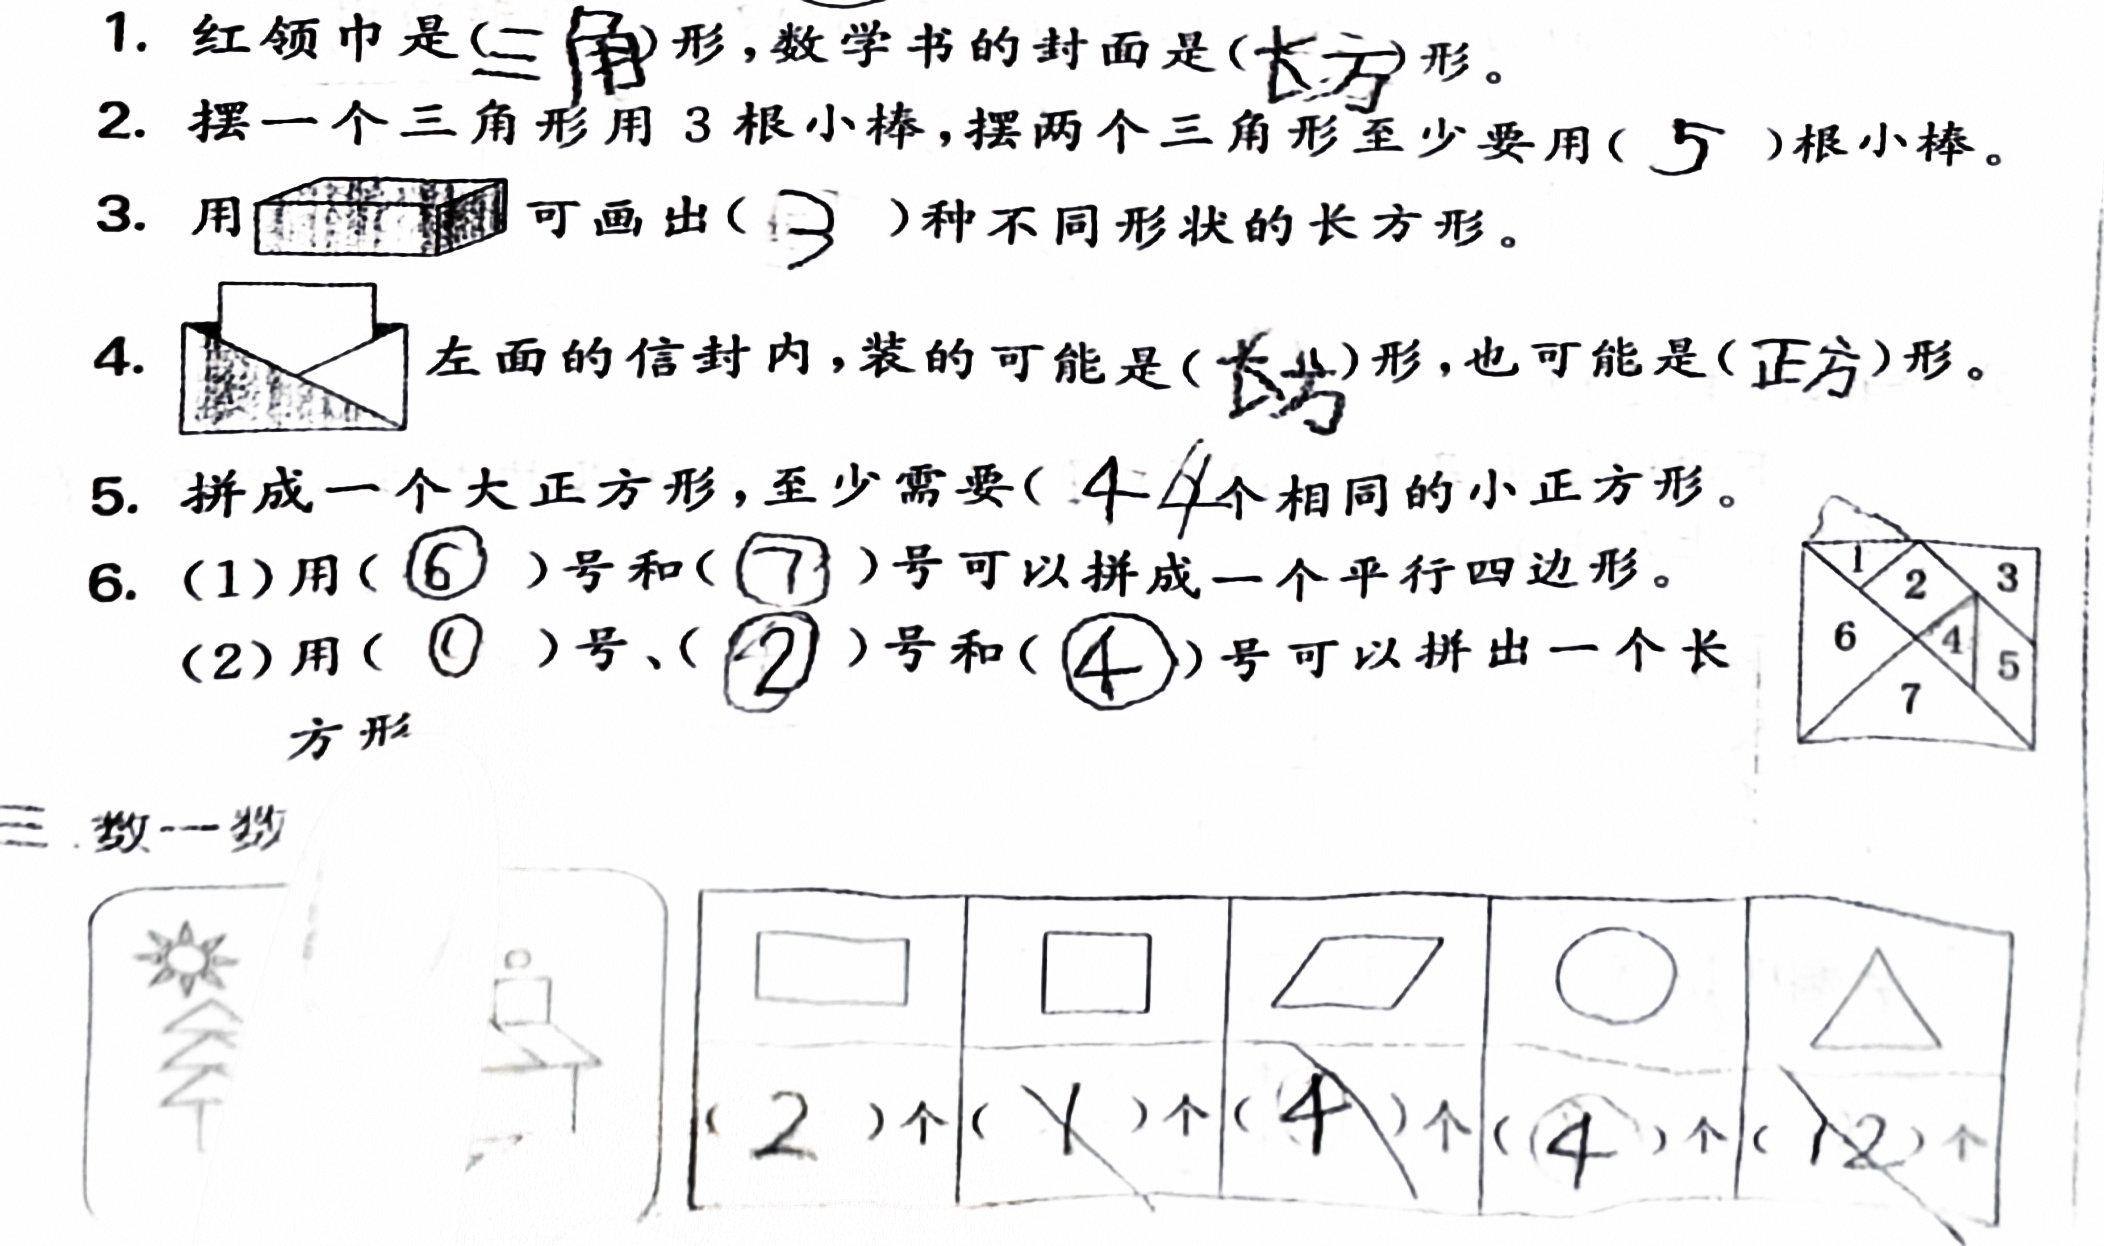 1. 红领巾是(三角)形,数学书的封面是(长方)形。
2. 摆一个三角形用 3 根小棒,摆两个三角形至少要用( 5 )根小棒。
3. 用 可画出( 3 )种不同形状的长方形。
4. 左面的信封内,装的可能是(长方)形,也可能是(正方)形。
5. 拼成一个大正方形,至少需要( 4 4个相同的小正方形。
6. (1)用( ⑥ )号和( ⑦ )号可以拼成一个平行四边形。
(2)用( ① )号、( ② )号和( ④ )号可以拼出一个长
方形
1 2 3
6 4 5
7
三.数一数
( 2 )个 ( 1 )个 ( 4 )个 ( 4 )个 ( 12 )个